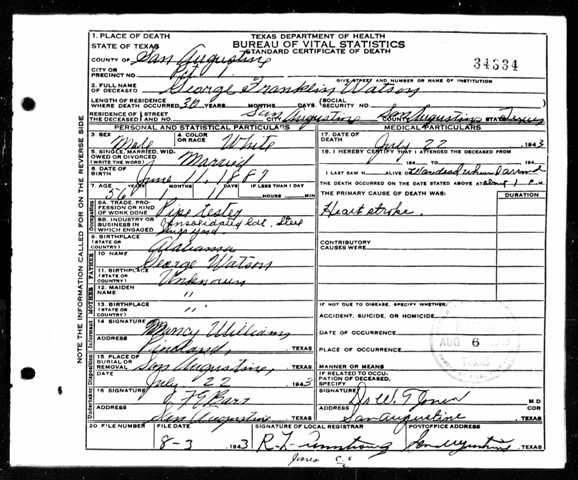 1. PLACE OF DEATH
TEXAS DEPARTMENT OF HEALTH
STATE OF TEXAS
BUREAU OF VITAL STATISTICS
STANDARD CERTIFICATE OF DEATH
COUNTY OF San Augustine
34334
CITY OR
PRECINCT NO.
GIVE STREET AND NUMBER OR NAME OF INSTITUTION
2. FULL NAME
OF DECEASED George Franklin Watson
LENGTH OF RESIDENCE
WHERE DEATH OCCURRED 30 YEARS MONTHS DAYS (SOCIAL
SECURITY NO.
RESIDENCE OF STREET
THE DECEASED AND NO. CITY San Augustine COUNTY San Augustine STATE Texas
PERSONAL AND STATISTICAL PARTICULARS
3. SEX Male
4. COLOR
OR RACE White
5. SINGLE, MARRIED, WID-
OWED OR DIVORCED
(WRITE THE WORD) Married
6. DATE OF
BIRTH June 11, 1887
7. AGE YEARS MONTHS DAYS IF LESS THAN 1 DAY
56 1 11 HOURS MIN
8A. TRADE, PROFES-
SION OR KIND
OF WORK DONE Pipe tester
8B. INDUSTRY OR
BUSINESS IN
WHICH ENGAGED Consolidated Steel
Ship yard
9. BIRTHPLACE
(STATE OR
COUNTRY) Alabama
FATHER
10 NAME George Watson
11. BIRTHPLACE
(STATE OR
COUNTRY) Unknown
MOTHER
12. MAIDEN
NAME "
13. BIRTHPLACE
(STATE OR
COUNTRY) "
14 SIGNATURE Williams
ADDRESS Pineland, TEXAS
15. PLACE OF
BURIAL OR
REMOVAL San Augustine, TEXAS
DATE July 22 1943
16 SIGNATURE
ADDRESS San Augustine TEXAS
MEDICAL PARTICULARS
17. DATE OF
DEATH July 22 1943
18. I HEREBY CERTIFY THAT I ATTENDED THE DECEASED FROM
19 TO 19
I LAST SAW H ALIVE ON
THE DEATH OCCURRED ON THE DATE STATED ABOVE AT
THE PRIMARY CAUSE OF DEATH WAS:
DURATION
Heart stroke.
CONTRIBUTORY
CAUSES WERE:
IF NOT DUE TO DISEASE, SPECIFY WHETHER:
ACCIDENT, SUICIDE, OR HOMICIDE
DATE OF OCCURRENCE
PLACE OF OCCURRENCE
AUG 6
MANNER OR MEANS
IF RELATED TO OCCU-
PATION OF DECEASED,
SPECIFY
SIGNATURE M D
ADDRESS San Augustine TEXAS
20 FILE NUMBER
FILE DATE 8-3 1943
SIGNATURE OF LOCAL REGISTRAR R. L. Armstrong
POSTOFFICE ADDRESS San Augustine TEXAS
NOTE THE INFORMATION CALLED FOR ON THE REVERSE SIDE